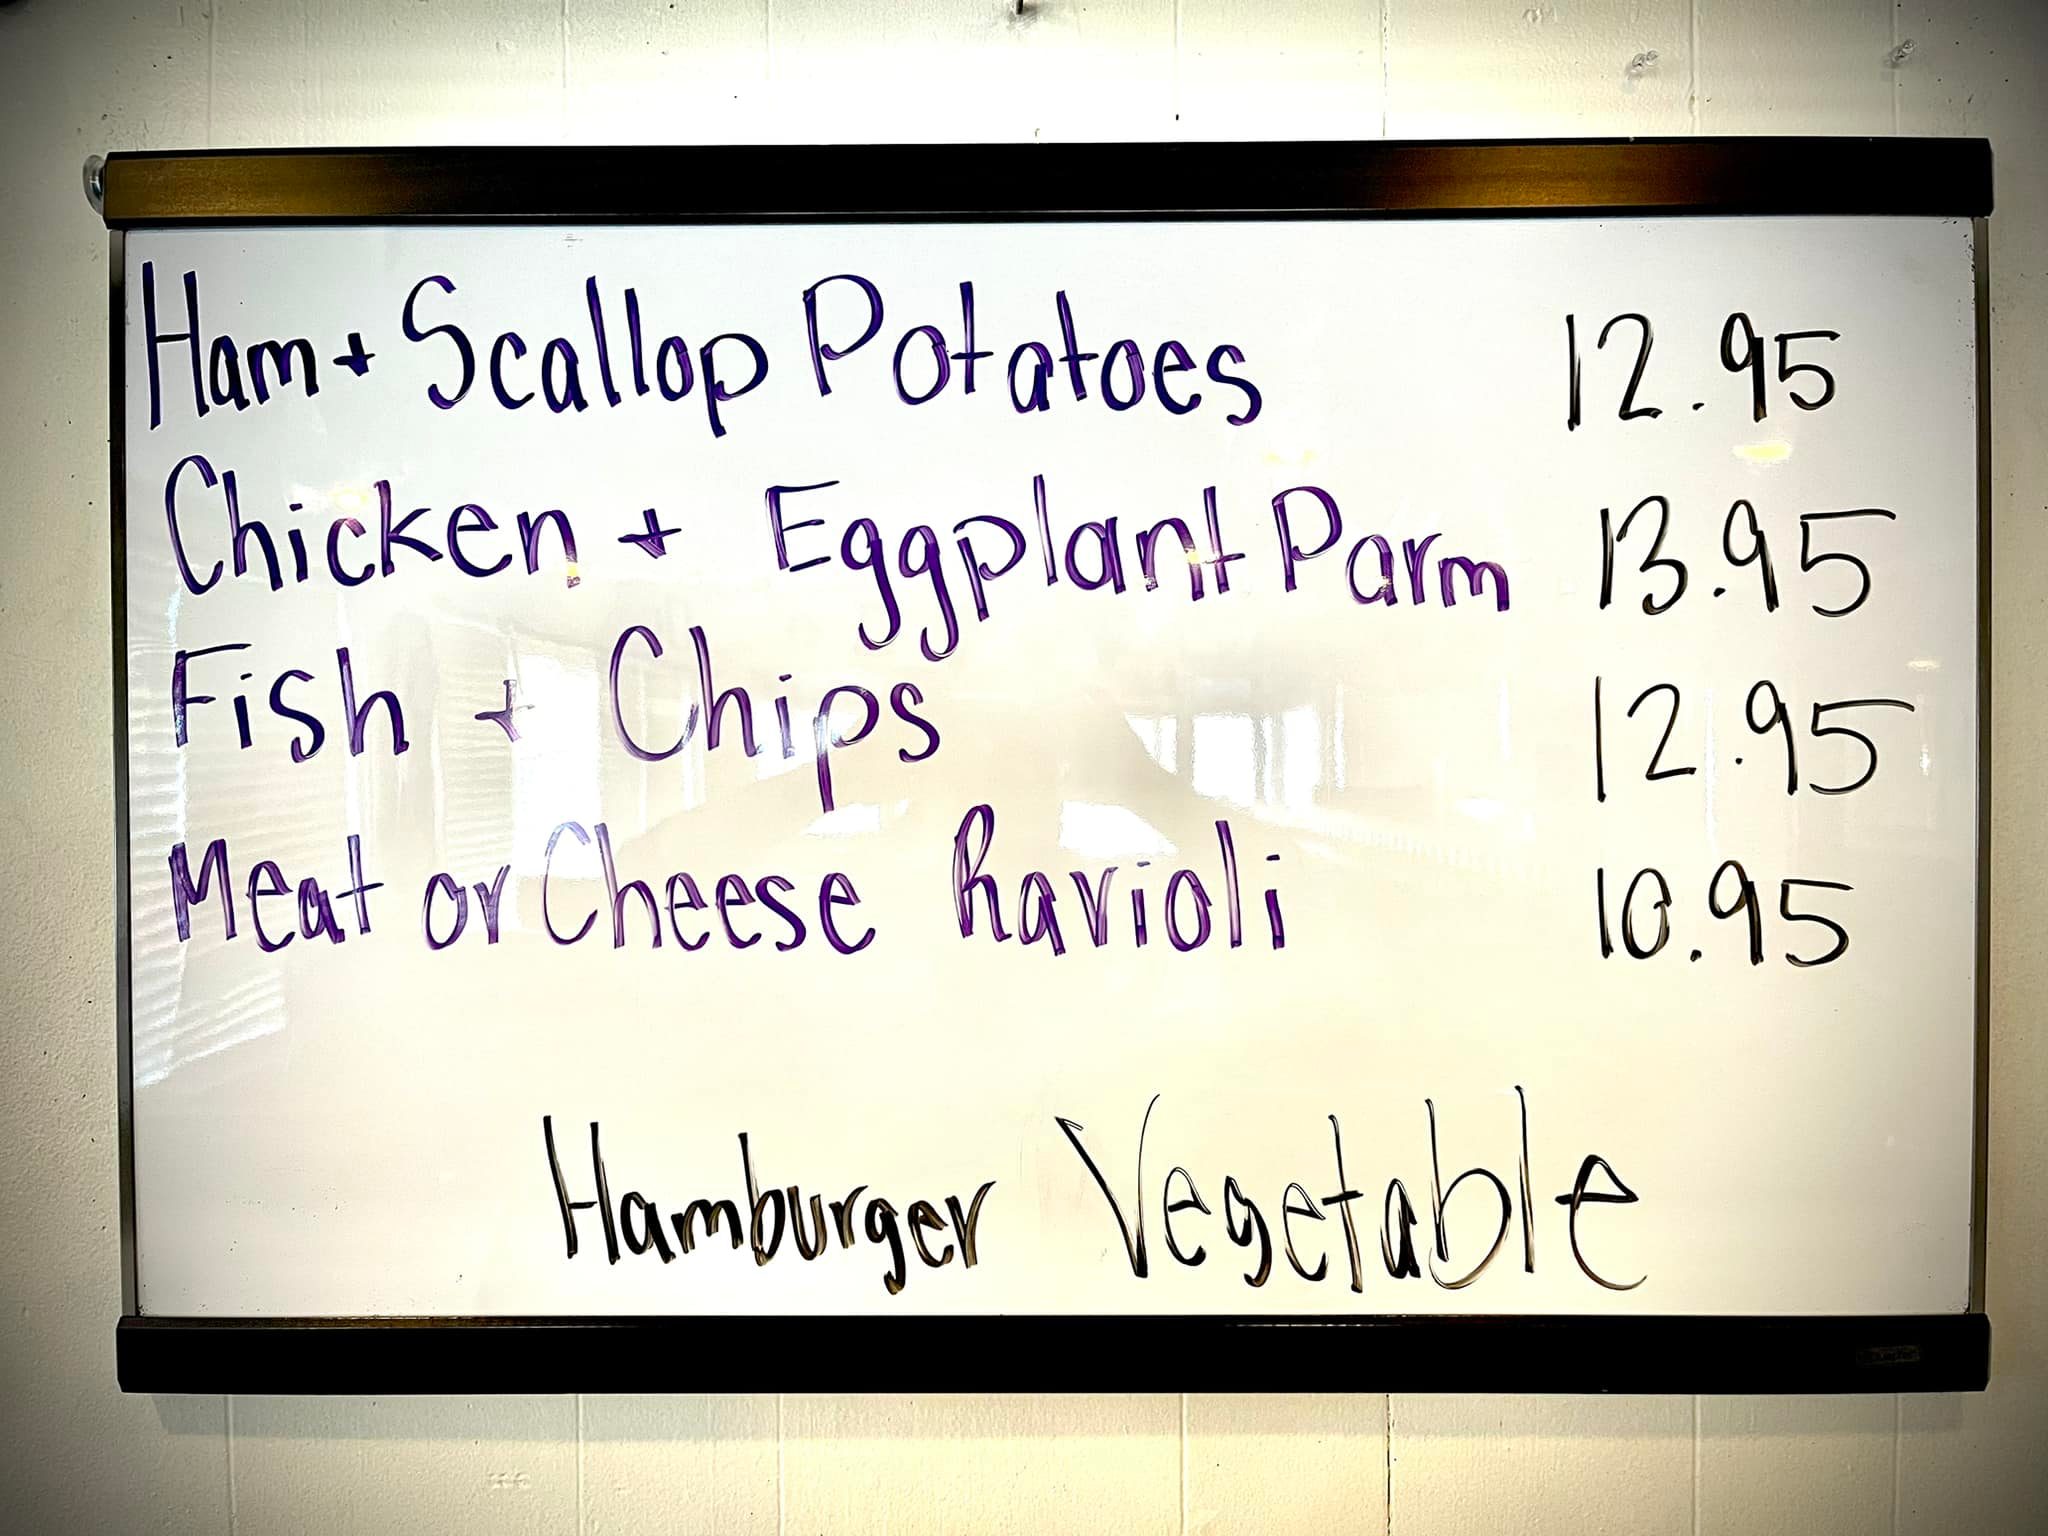 Ham + Scallop Potatoes 12.95
Chicken + Eggplant Parm 13.95
Fish + Chips 12.95
Meat or Cheese Ravioli 10.95
Hamburger Vegetable